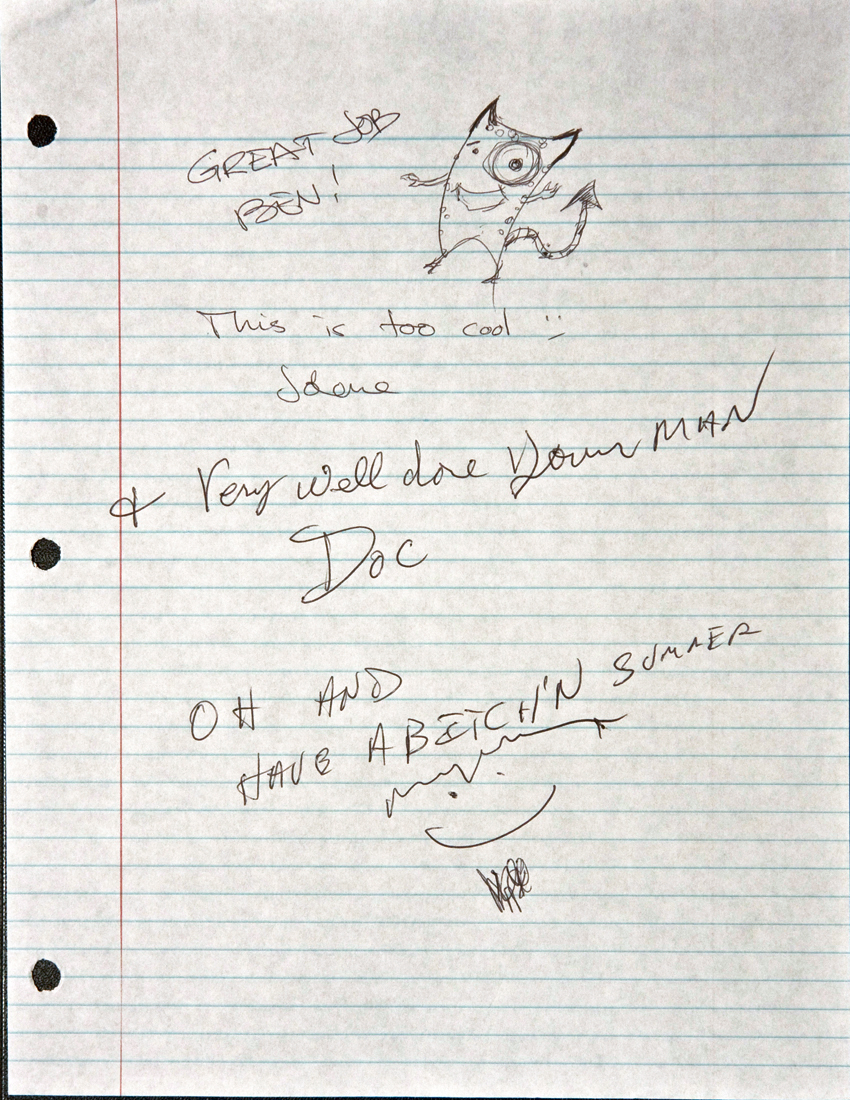 GREAT JOB
BEN!
This is too cool :)
& Very well done Young MAN
Doc
OH AND
HAVE A BEITCH'N SUMMER